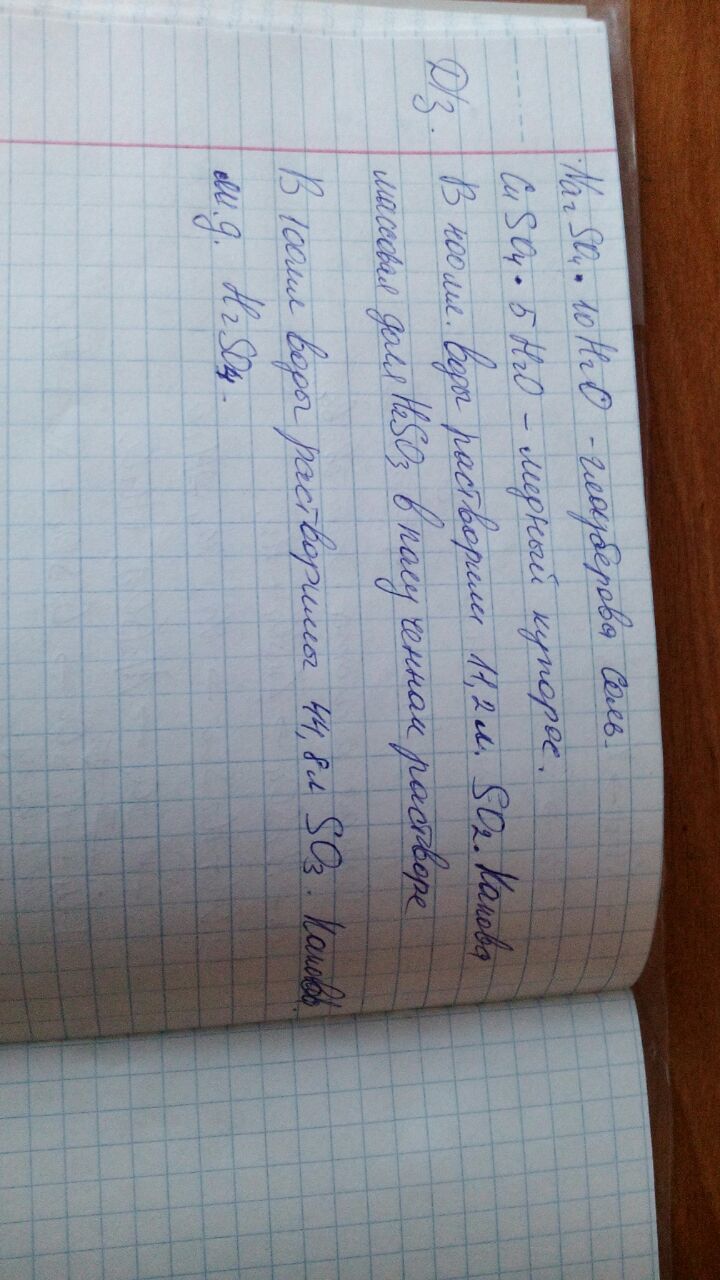 Na₂SO₄ · 10H₂O - глауберова соль.
CuSO₄ · 5H₂O - медный купорос.
Д/з. В 400мл. воды растворили 11,2 л. SO₂. Какова
массовая доля H₂SO₃ в полученном растворе
В 100мл воды растворили 44,8л SO₃. Какова
м.д. H₂SO₄.